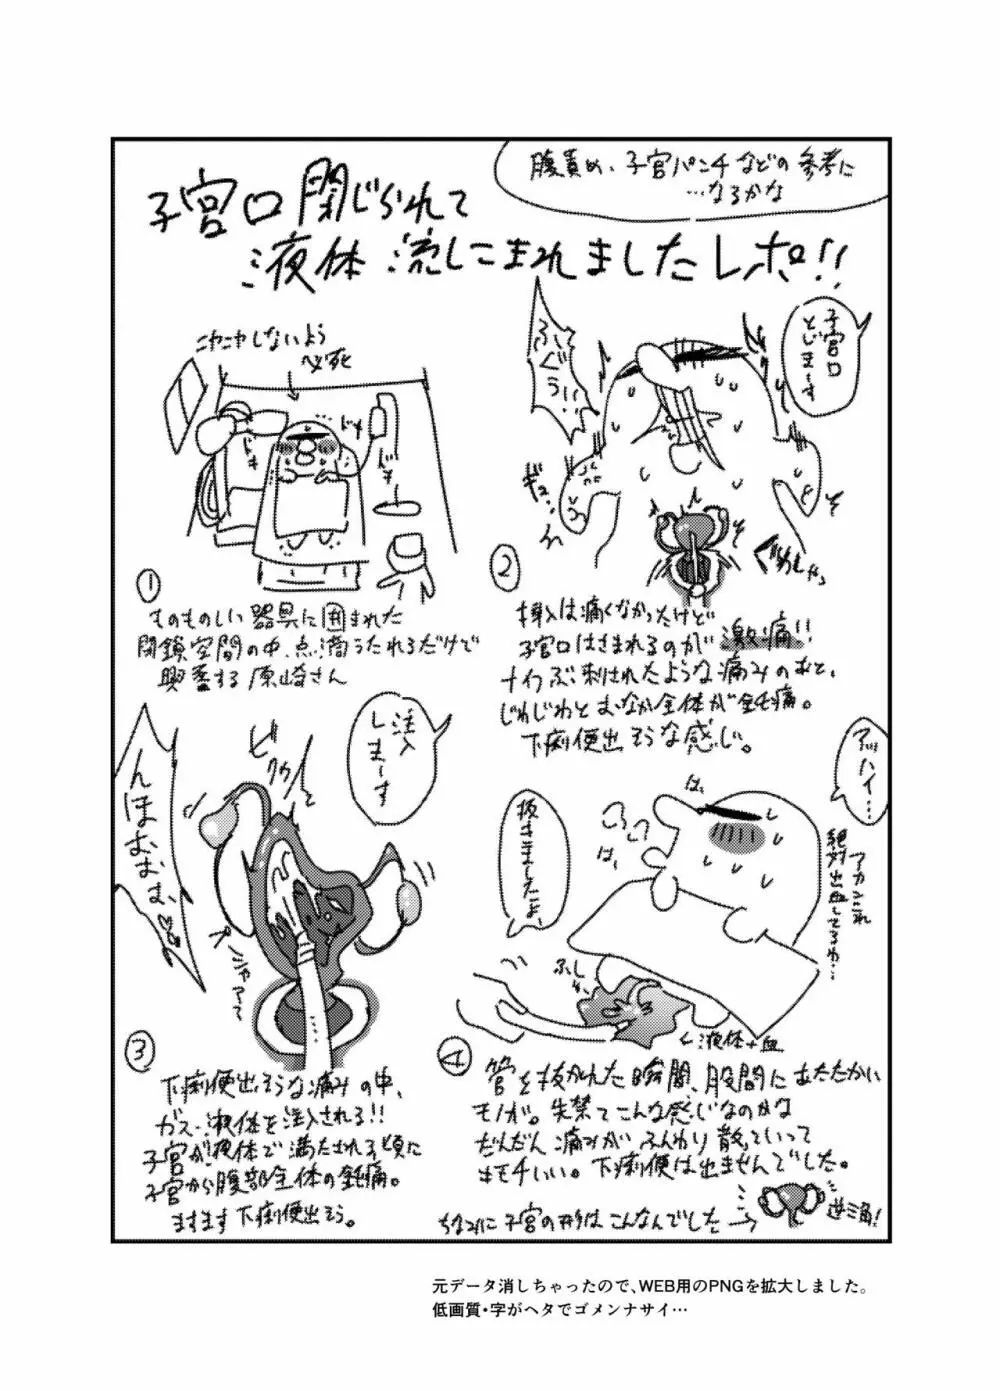 腹責め、子宮パンチなどの参考に
…なるかな
子宮口閉じられて
液体流しこまれましたレポ!!
ニヤニヤしないよう
必死
ドキ
ドキ
ドキ
①
ものものしい器具に囲まれた
閉鎖空間の中、点滴うたれるだけで
興奮する原崎さん
子宮口
とじまーす
ふぐうぅ
ギュ…
②
挿入は痛くなかったけど
子宮口はさまれるのが激痛!!
ナイフぶっ刺されたような痛みのあと、
じわじわとおなか全体が鈍痛。
下痢便出そうな感じ。
注入
しまーす
んほおぉぉ、♡
ビクゥ
③
下痢便出そうな痛みの中、
ガス・液体を注入される!!
子宮が液体で満たされる頃に
子宮から腹部全体の鈍痛。
ますます下痢便出そう。
アッハイ…
抜きましたよ、
は、
は、
アカンこれ
絶対出血してるわ…
←液体+血
④
管を抜かれた瞬間、股間にあたたかい
モノが。失禁てこんな感じなのかな
だんだん痛みがふんわり散っていって
キモチいい。下痢便は出ませんでした。
ちなみに子宮の形はこんなんでした→
逆三角!
元データ消しちゃったので、WEB用のPNGを拡大しました。
低画質・字がヘタでゴメンナサイ…